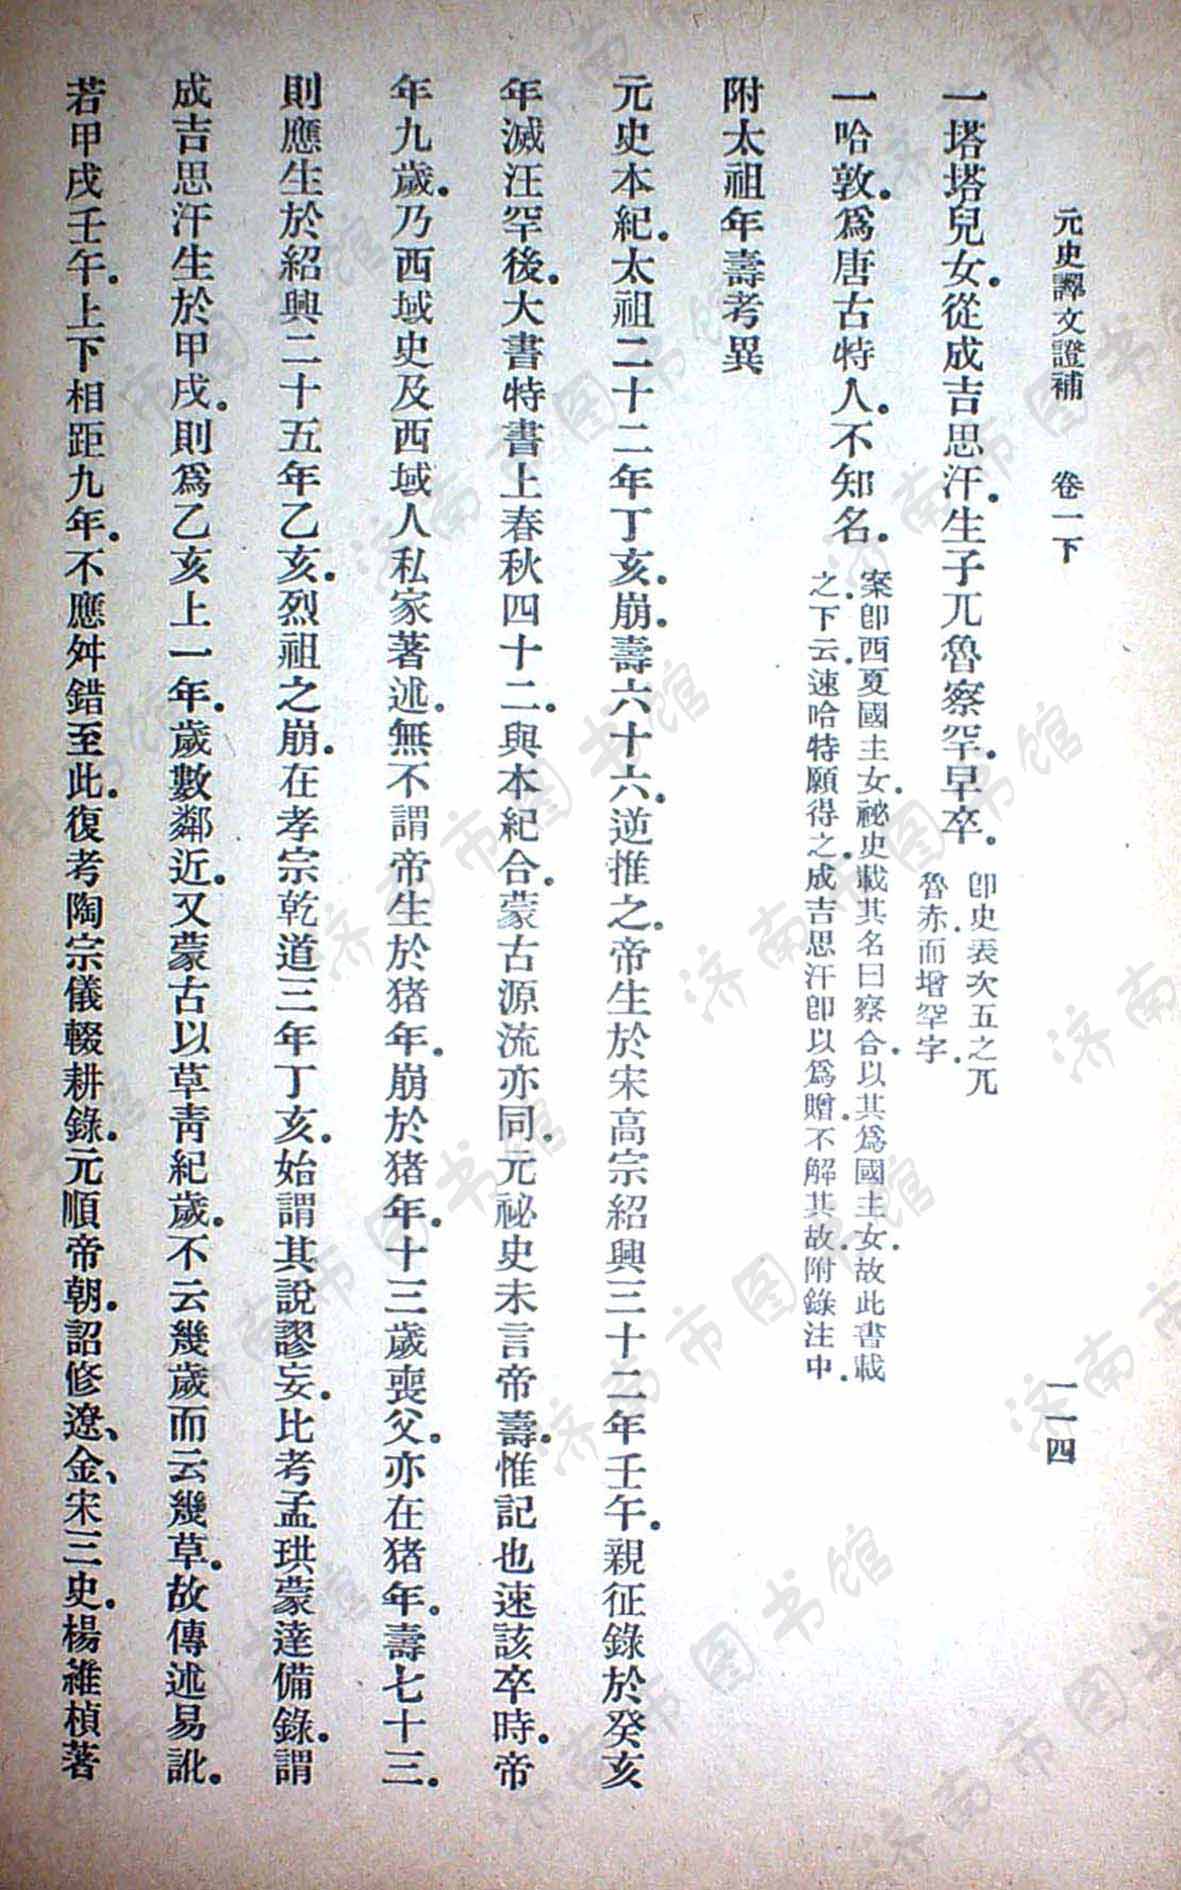 元史譯文證補　卷一下　一一四
一塔塔兒女．從成吉思汗．生子兀魯察罕．早卒．卽史表次五之兀
魯赤．而增罕字．
一哈敦．爲唐古特人．不知名．案卽西夏國主女．祕史載其名曰察合．以其爲國主女．故此書載
之．下云．速哈特願得之．成吉思汗卽以爲贈．不解其故．附錄注中．
附太祖年壽考異
元史本紀．太祖二十二年丁亥．崩．壽六十六．逆推之．帝生於宋高宗紹興三十二年壬午．親征錄於癸亥
年滅汪罕後．大書特書上春秋四十二．與本紀合．蒙古源流亦同．元祕史未言帝壽．惟記也速該卒時．帝
年九歲．乃西域史及西域人私家著述．無不謂帝生於猪年．崩於猪年．十三歲喪父．亦在猪年．壽七十三．
則應生於紹興二十五年乙亥．烈祖之崩．在孝宗乾道三年丁亥．始謂其說謬妄．比考孟珙蒙達備錄．謂
成吉思汗生於甲戌．則爲乙亥上一年．歲數鄰近．又蒙古以草靑紀歲．不云幾歲而云幾草．故傳述易訛．
若甲戌壬午．上下相距九年．不應舛錯至此．復考陶宗儀輟耕錄．元順帝朝．詔修遼、金、宋三史．楊維楨著